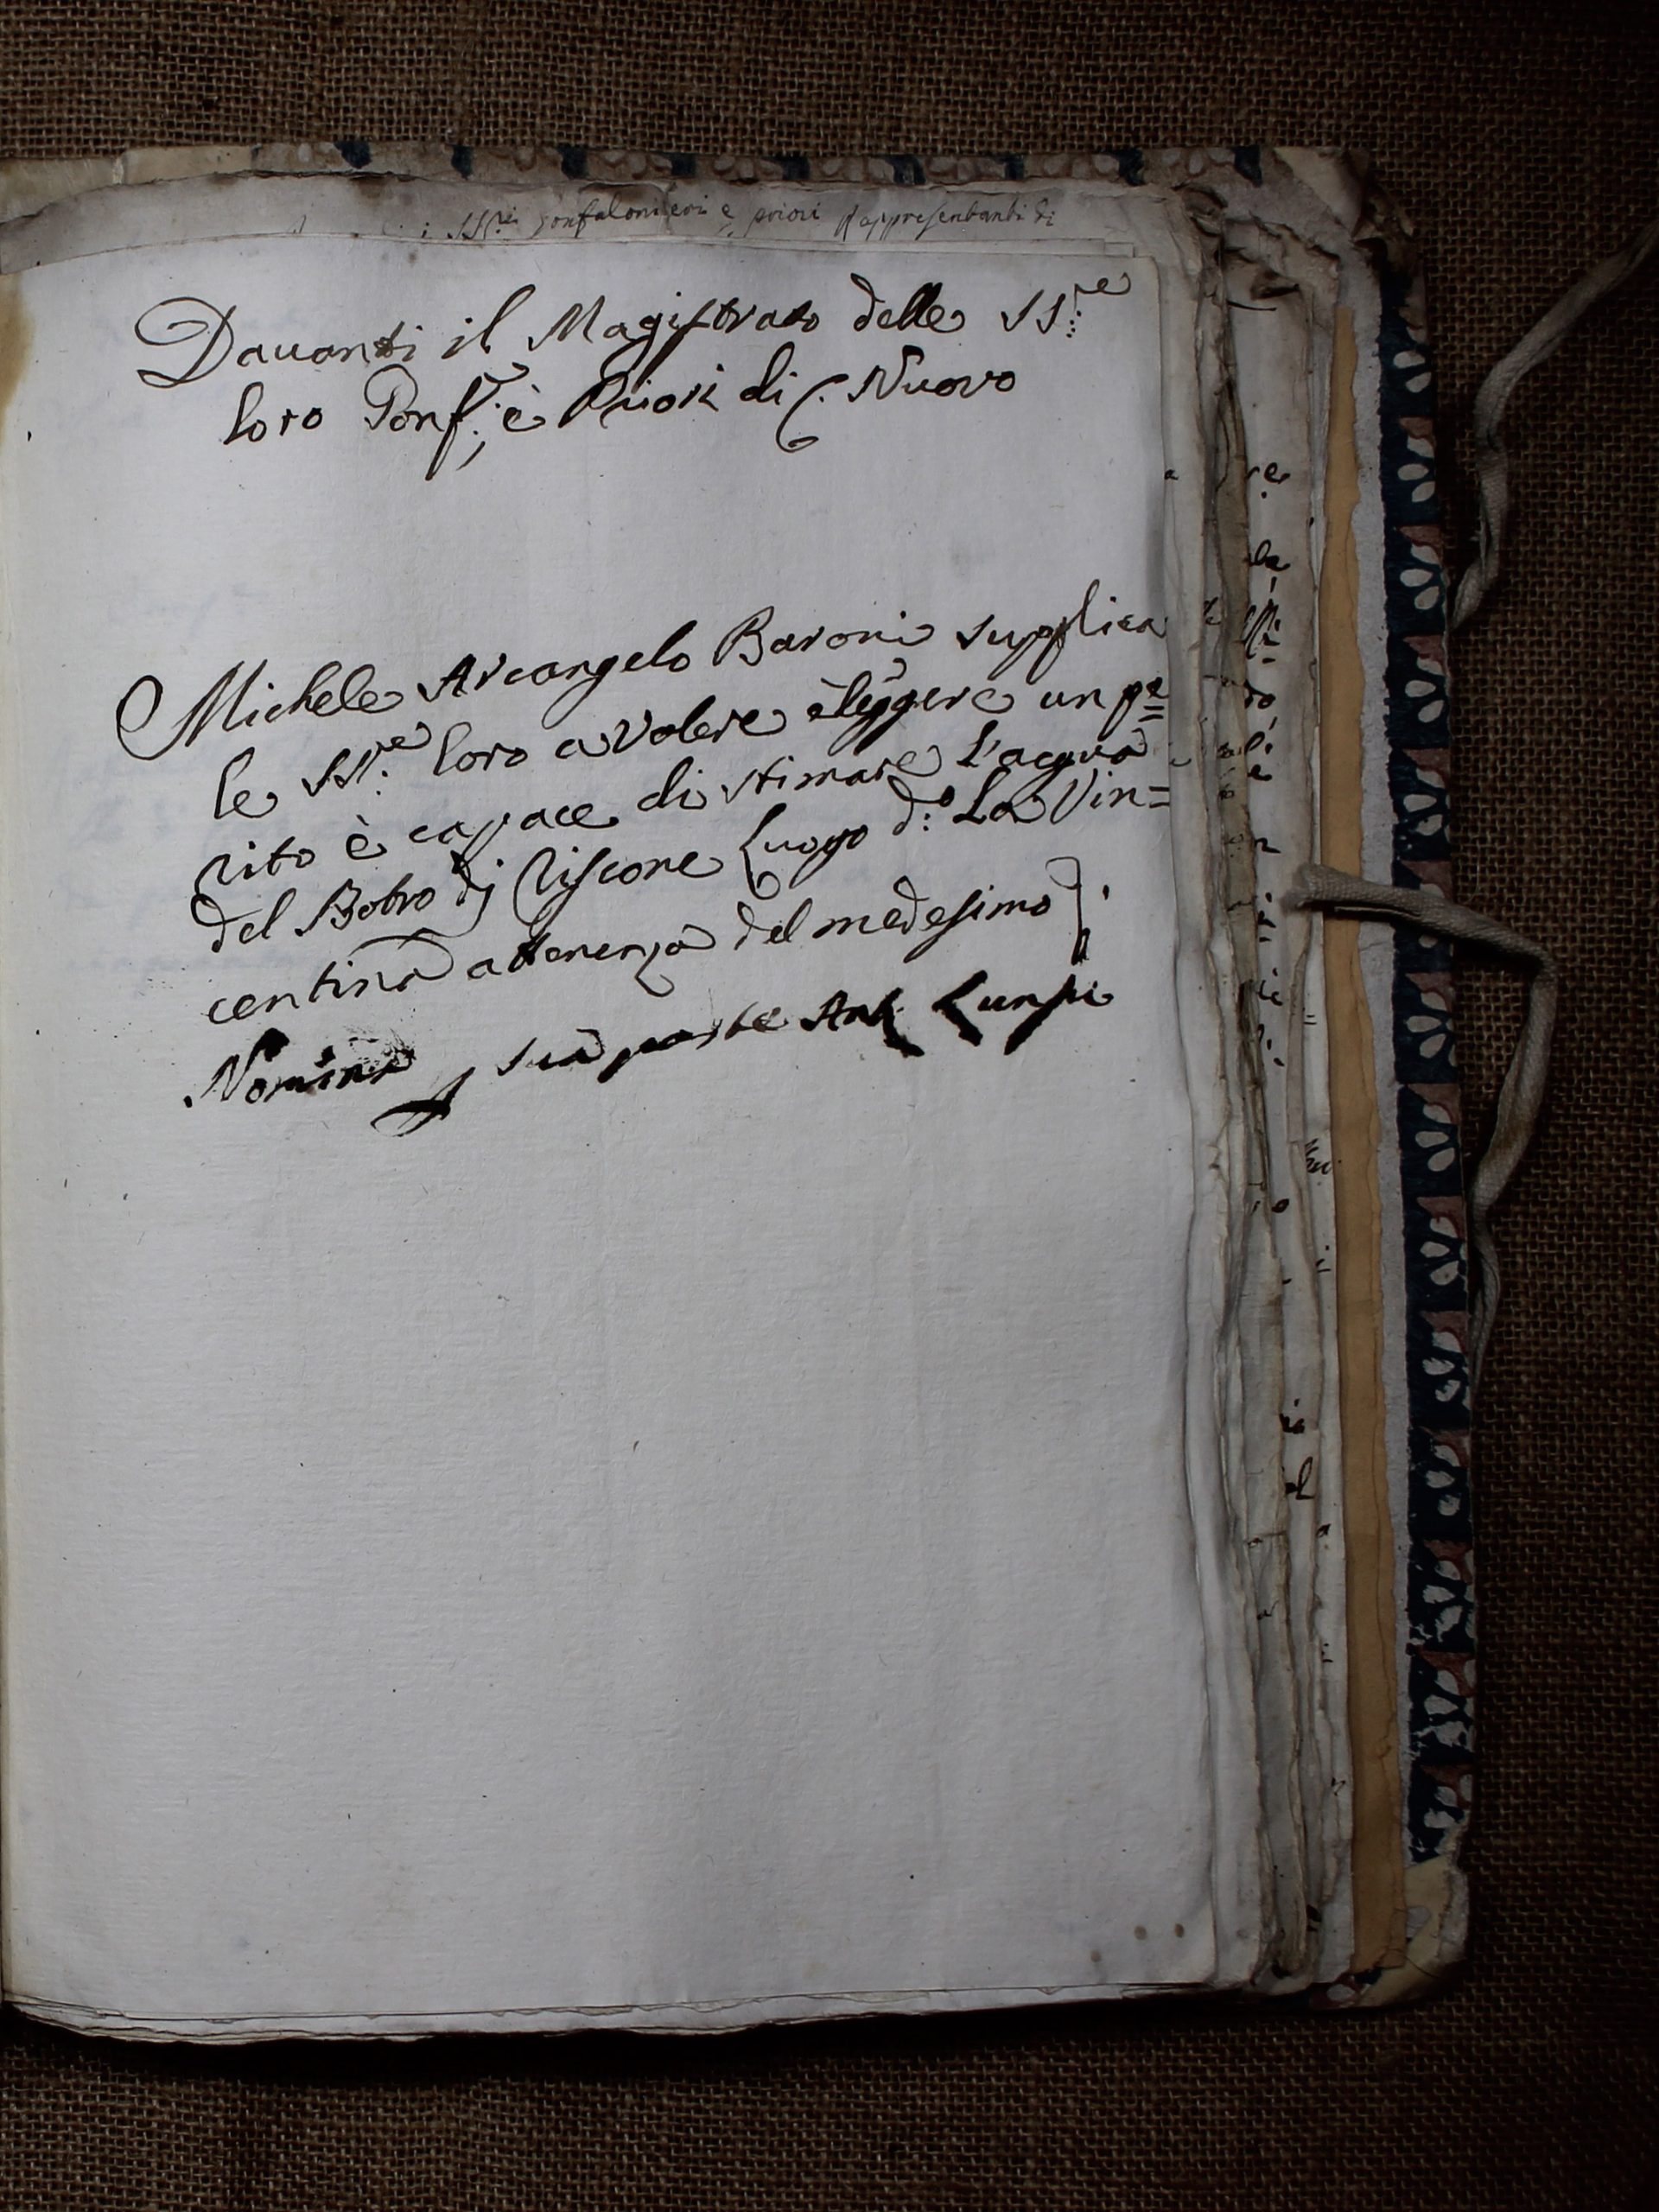 SS.ri Gonfalonieri e priori Rappresentanti di
Dauanti il Magistrato delle SS.re
loro Gonf.; è Priori di C. Nuovo
Michele Arcangelo Baroni supplica
le SS.re loro a volere eleggere un pe=
rito è capace di stimare L'acqua
del Botro di Riscone Luogo d.o La Vin=
centina attenenza del medesimo
Nomina p sua parte Ant.